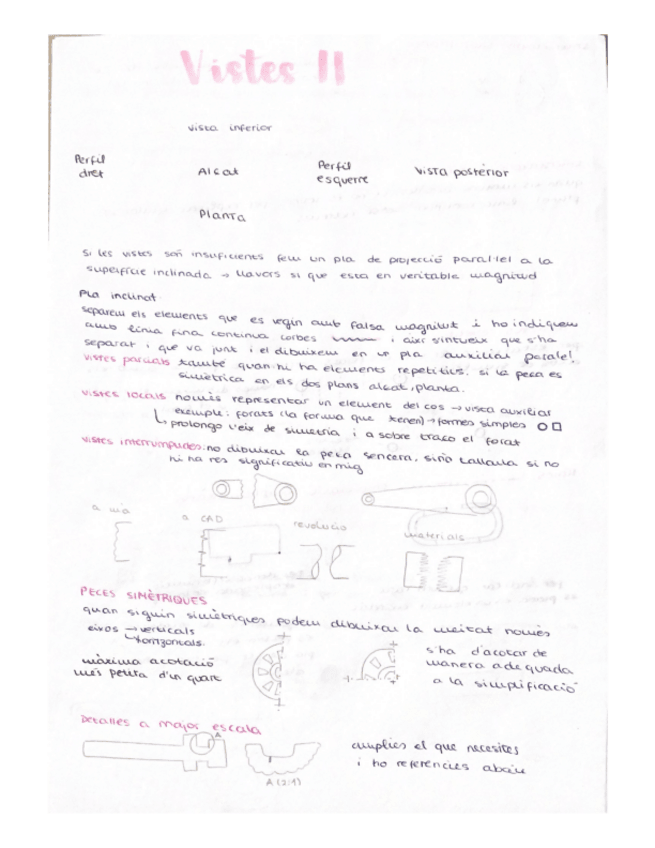 Vistes II
vista inferior
Perfil dret
Alçat
Perfil esquerre
Vista posterior
Planta
Si les vistes són insuficients fem un pla de projecció paral·lel a la
superfície inclinada → llavors si que esta en veritable magnitud
Pla inclinat:
separem els elements que es vegin amb falsa magnitut i ho indiquem
amb línia fina continua corbes i així s'intueix que s'ha
separat i que va junt i el dibuixem en un pla auxiliar paralel
vistes parcials també quan hi ha elements repetitius, si la peça es
simètrica en els dos plans alçat, planta.
vistes locals només representar un element del cos → vista auxiliar
exemple: forats (la forma que tenen) → formes simples
prolongo l'eix de simetria i a sobre traço el forat
vistes interrumpudes: no dibuixar la peça sencera, sinó tallarla si no
hi ha res significatiu en mig
a mà
a CAD
revolució
materials
PECES SIMÈTRIQUES
quan siguin simètriques podem dibuixar la meitat només
eixos → verticals
horitzontals.
màxima acotació
més petita d'un quart
s'ha d'acotar de
manera adequada
a la simplificació
Detalles a major escala
A
A (2:1)
amplies el que necesites
i ho referències abaix